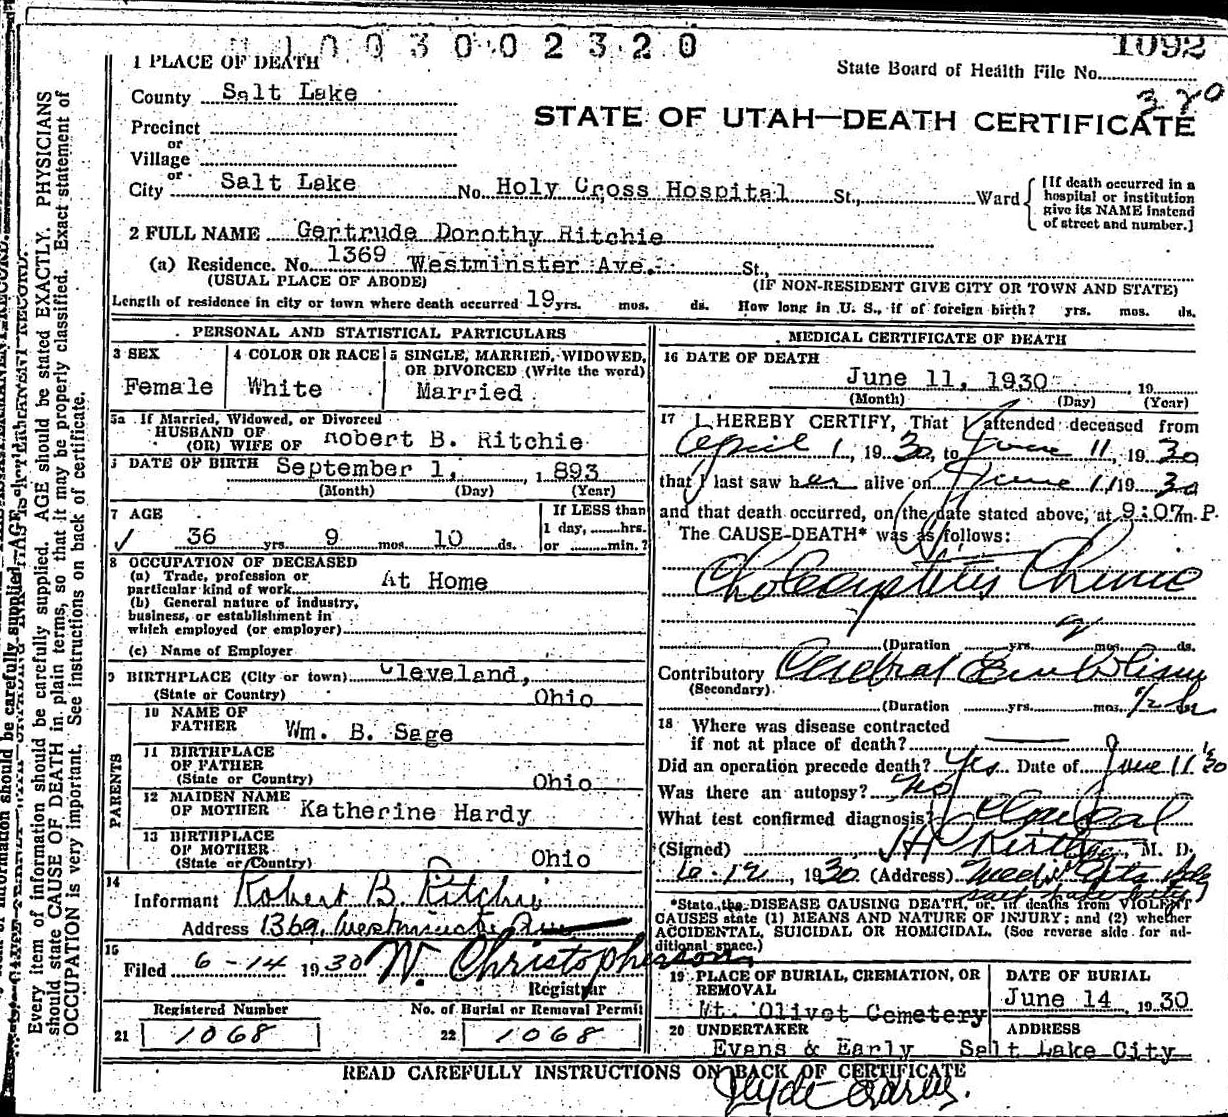 1003002320
1092
1 PLACE OF DEATH
State Board of Health File No.
320
County Salt Lake
STATE OF UTAH—DEATH CERTIFICATE
Precinct
or
Village
or
City Salt Lake No. Holy Cross Hospital St., Ward
[If death occurred in a hospital or institution give its NAME instead of street and number.]
2 FULL NAME Gertrude Dorothy Ritchie
(a) Residence. No. 1369 Westminster Ave. St.,
(USUAL PLACE OF ABODE) (IF NON-RESIDENT GIVE CITY OR TOWN AND STATE)
Length of residence in city or town where death occurred 19 yrs. mos. ds. How long in U. S., if of foreign birth? yrs. mos. ds.
PERSONAL AND STATISTICAL PARTICULARS
3 SEX
Female
4 COLOR OR RACE
White
5 SINGLE, MARRIED, WIDOWED,
OR DIVORCED (Write the word)
Married
5a If Married, Widowed, or Divorced
HUSBAND OF
(OR) WIFE OF Robert B. Ritchie
DATE OF BIRTH September 1, 1893
(Month) (Day) (Year)
7 AGE
36 yrs 9 mos. 10 ds.
If LESS than
1 day, hrs.
or min.?
8 OCCUPATION OF DECEASED
(a) Trade, profession or
particular kind of work At Home
(b) General nature of industry,
business, or establishment in
which employed (or employer)
(c) Name of Employer
9 BIRTHPLACE (City or town) Cleveland,
(State or Country) Ohio
PARENTS
10 NAME OF
FATHER Wm. B. Sage
11 BIRTHPLACE
OF FATHER
(State or Country) Ohio
12 MAIDEN NAME
OF MOTHER Katherine Hardy
13 BIRTHPLACE
OF MOTHER
(State or Country) Ohio
14
Informant Robert B. Ritchie
Address 1369 Westminster Ave
15
Filed 6-14 1930 W. Christopherson
Registrar
Registered Number No. of Burial or Removal Permit
21 1068 22 1068
MEDICAL CERTIFICATE OF DEATH
16 DATE OF DEATH
June 11, 1930 19
(Month) (Day) (Year)
17 I HEREBY CERTIFY, That I attended deceased from
April 1, 1930, to June 11, 1930
that I last saw her alive on June 11 1930
and that death occurred, on the date stated above, at 9:07 m. P.
The CAUSE-DEATH* was as follows:
Cholecystitis Chronic
(Duration yrs. mos. ds.
Contributory Cerebral Embolism
(Secondary)
(Duration yrs. mos. 1/2 ds
18 Where was disease contracted
if not at place of death?
Did an operation precede death? Yes Date of June 11 1930
Was there an autopsy? No
What test confirmed diagnosis? Clinical
(Signed) M. D.
6-12, 1930 (Address)
*State the DISEASE CAUSING DEATH, or, in deaths from VIOLENT
CAUSES state (1) MEANS AND NATURE OF INJURY; and (2) whether
ACCIDENTAL, SUICIDAL OR HOMICIDAL. (See reverse side for ad-
ditional space.)
19 PLACE OF BURIAL, CREMATION, OR
REMOVAL
Mt. Olivet Cemetery
DATE OF BURIAL
June 14, 1930
20 UNDERTAKER ADDRESS
Evans & Early Salt Lake City
READ CAREFULLY INSTRUCTIONS ON BACK OF CERTIFICATE
Every item of information should be carefully supplied. AGE should be stated EXACTLY. PHYSICIANS
should state CAUSE OF DEATH in plain terms, so that it may be properly classified. Exact statement of
OCCUPATION is very important. See instructions on back of certificate.